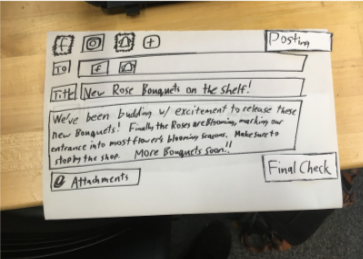 Posting
To
Title New Rose Bouquets on the shelf!
We've been budding w/ excitement to release these
new Bouquets! Finally the Roses are Blooming, marking our
entrance into most flower's blooming seasons. Make sure to
stop by the shop. More Bouquets soon!!
Attachments
Final Check